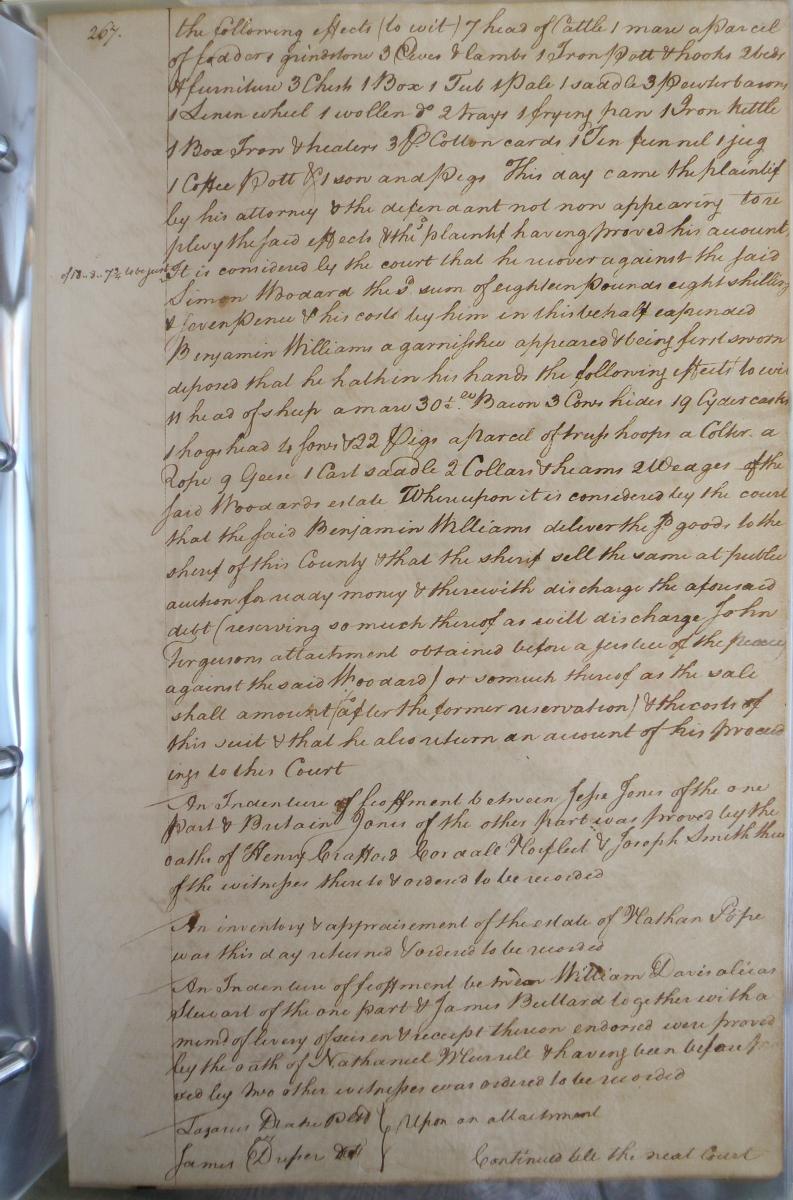 267.
the following effects (to wit) 7 head of Cattle 1 mare a Parcel
of fodder 1 grindstone 3 Ewes & lambs 1 Iron Pott & hooks 2 beds
& furniture 3 Chests 1 Box 1 Tub 1 Pale 1 saddle 3 Pewter basons
1 Linin wheel 1 wollen do 2 trays 1 frying pan 1 Iron kettle
1 Box Iron & heaters 3 pr Cotton cards 1 Tin funnel 1 jug
1 Coffee Pott & 1 sow and Pigs This day came the plaintif
by his attorney & the defendant not now appearing to re
plevy the said effects & the sd plaintif having Proved his account
of 18..8..7 to be just It is considered by the court that he recover against the said
Simon Woodard the sd sum of eighteen Pounds eight shilling
& seven Pence & his costs by him in this behalf expended
Benjamin Williams a garnishee appeared & being first sworn
deposed that he hath in his hands the following effects to wit
11 head of sheep a mare 30 Bacon 3 Cows hides 19 Cyder casks
1 hogshead 4 sows & 22 Pigs a Parcel of truss hoops a Colter. a
Rope 9 Geese 1 Cart saddle 2 Collars & heams 2 Wedges of the
said Woodards estate Whereupon it is considered by the court
that the said Benjamin Williams deliver the sd goods to the
sherif of this County & that the sherif sell the same at publick
auction for ready money & therewith discharge the aforesaid
debt (reserving so much thereof as will discharge John
Fergusons attachment obtained before a justice of the peace
against the said Woodard) or so much thereof as the sale
shall amount to (after the former reservation) & the costs of
this suit & that he also return an account of his proceed
ings to this Court
An Indenture of feoffment between Jesse Jones of the one
Part & Britain Jones of the other part was proved by the
oaths of Henry Crafford Cordall Norfleet & Joseph Smith three
of the witnesses thereto & ordered to be recorded
An inventory & appraisement of the estate of Nathan Pope
was this day returned & ordered to be recorded
An Indenture of feoffment between William Davis alias
Stewart of the one part & James Bullard together with a
memd of livery of seisen & receipt thereon endorsed were proved
by the oath of Nathaniel Murrell & having been before pro
ved by two other witnesses was ordered to be recorded
Lazarus Drake Plt } Upon an attachment
James Draper Dft } Continued till the next Court